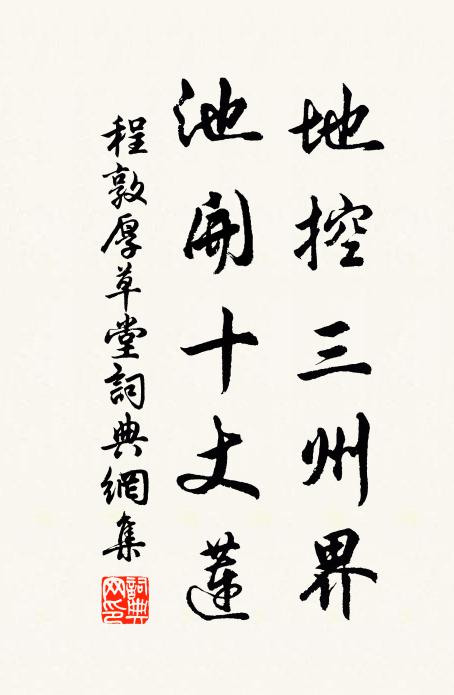 地控三州界
池開十丈蓮
程敦厚草堂詞典網集
詞典網印